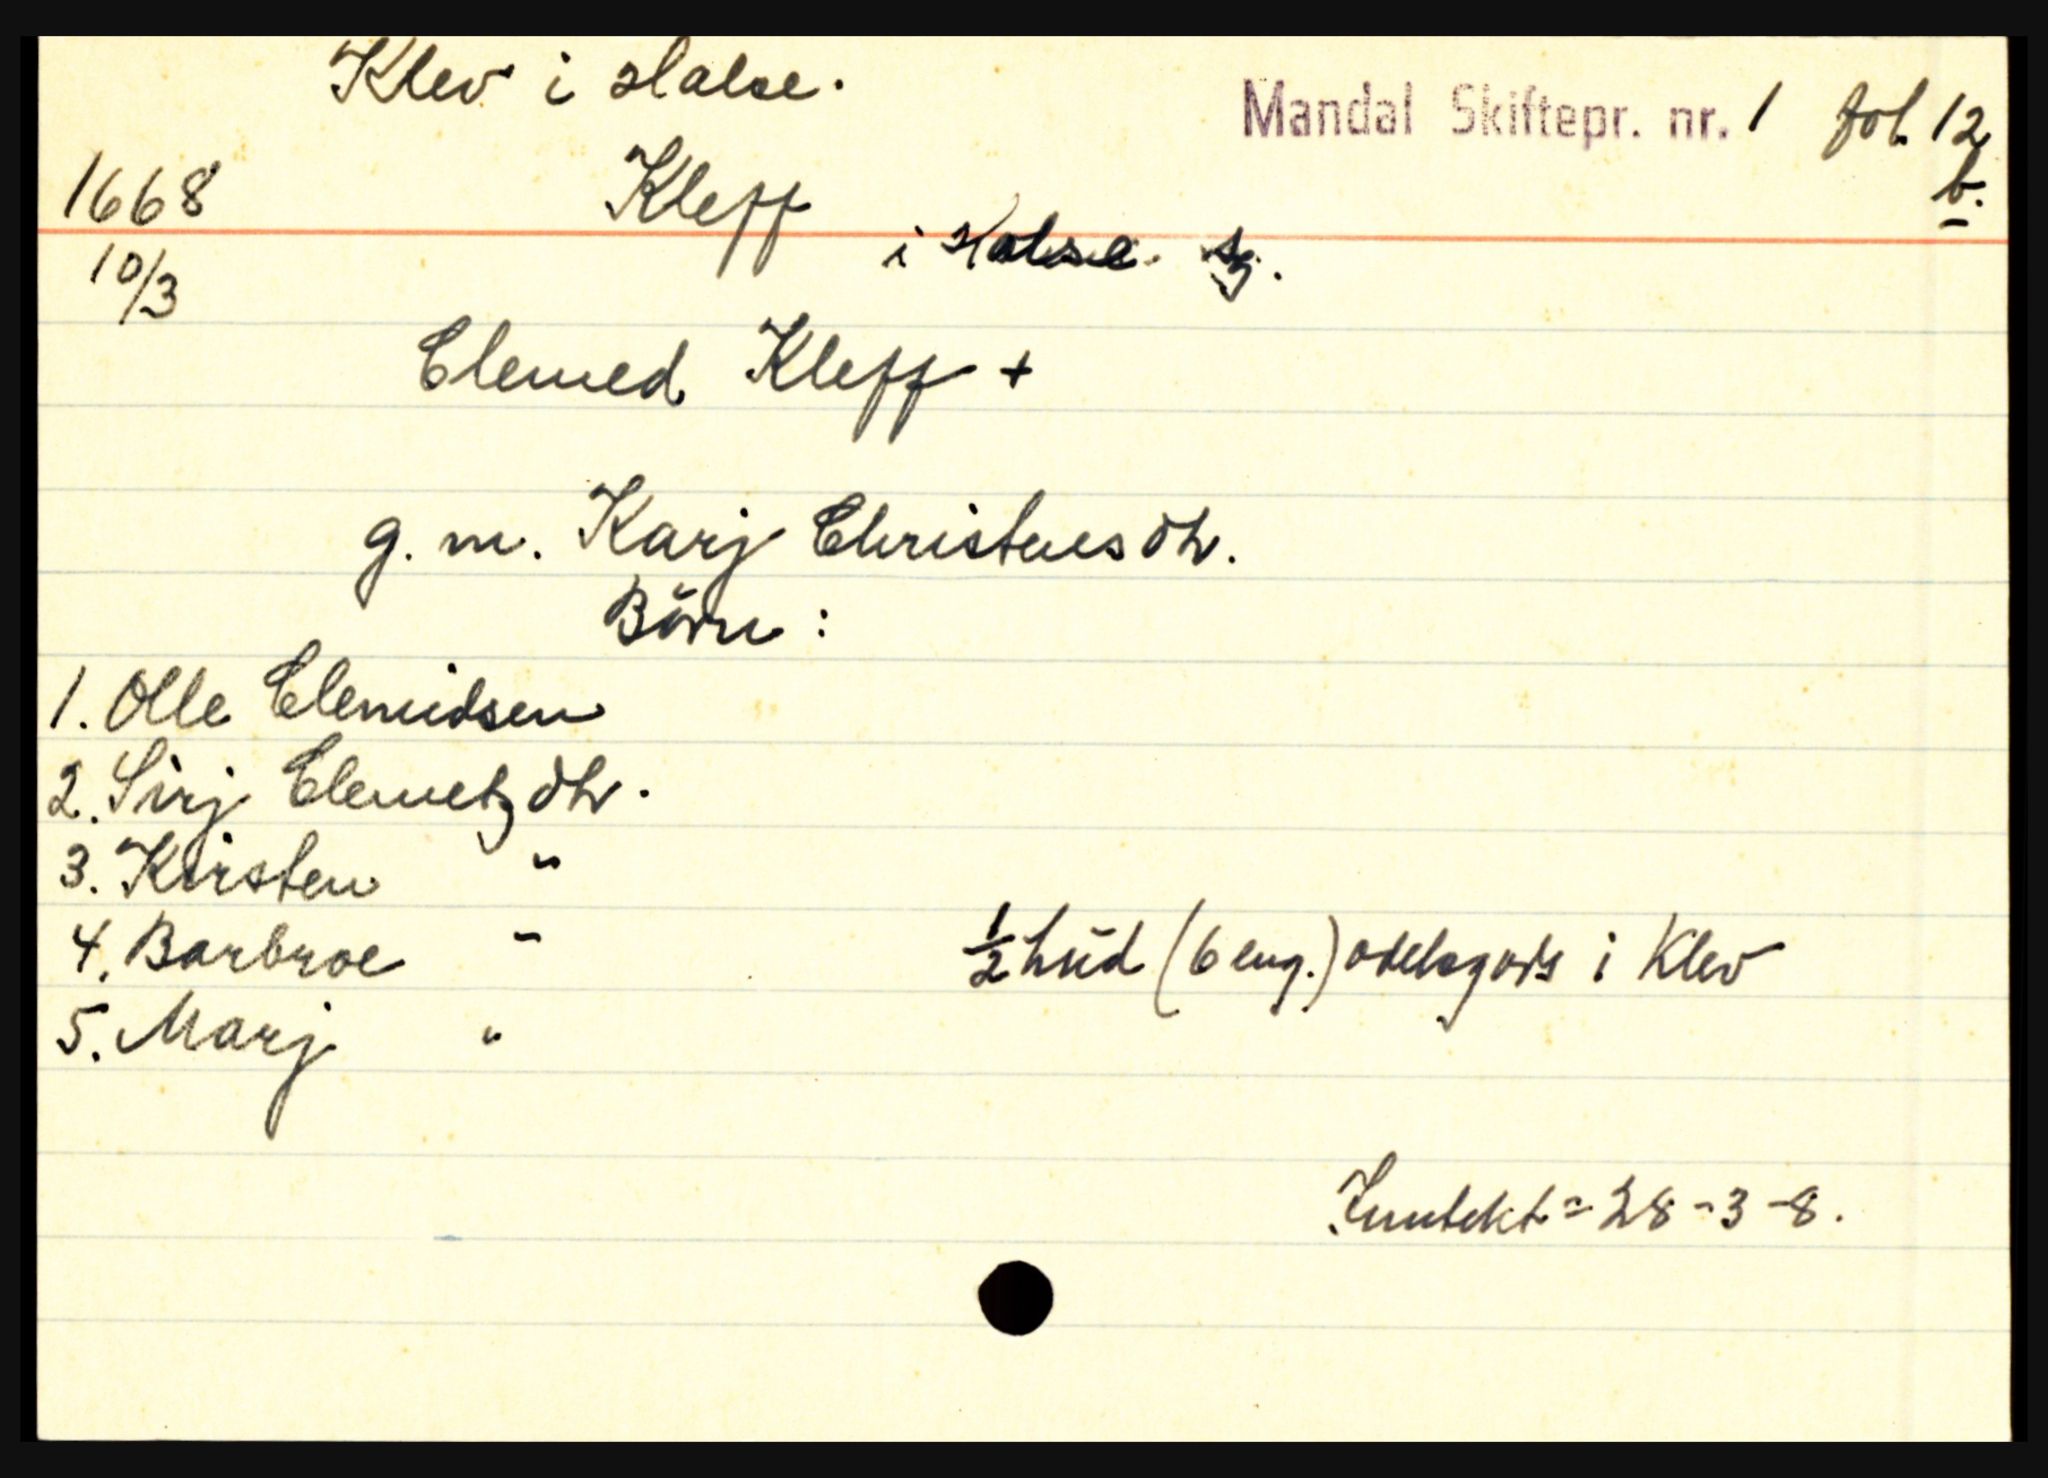 Klev i Halse.
Mandal Skiftepr. nr. 1 fol. 12 b.
1668
Kleff
i Halse. sg.
10/3
Clemed Kleff +
g. m. Karj Christensdtr.
Börn :
1. Olle Clemidsen
2. Sirj Clemetzdtr.
3. Kirsten "
4. Barbroe "
½ hŭd (6 eng.) odelsgods i Klev
5. Marj "
Inntekt = 28-3-8.